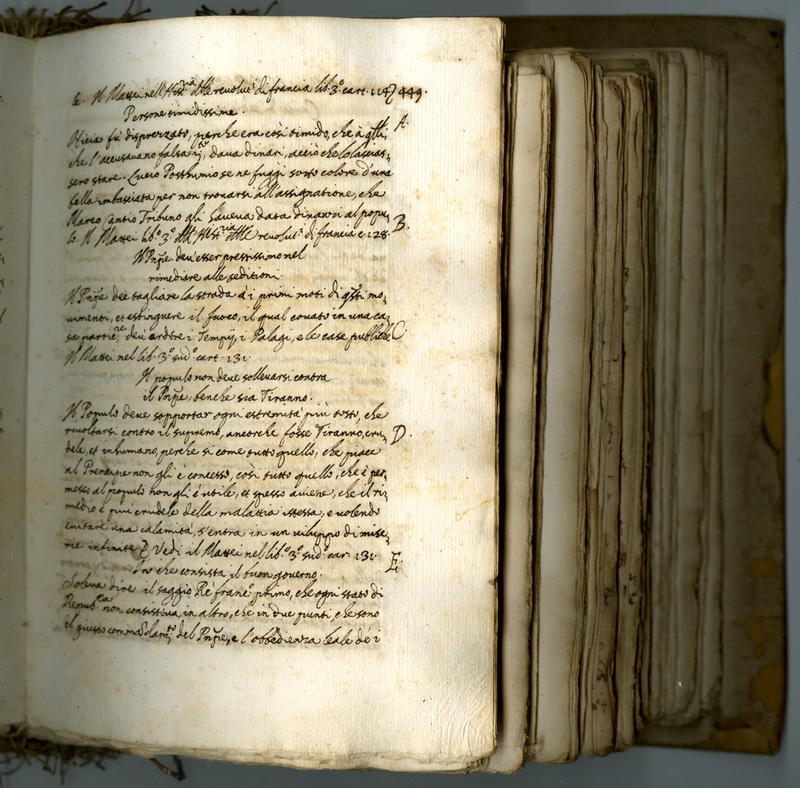 le. Il Mattei nell'Hist.ria delle revolut.i di francia lib. 3.o cart. 114 449.
Persone timidissime.
Nicia fù disprezzato, perche era così timido, che à q̃lli, A.
che l'accusavano falsam.te, dava dinari, acciò che lo lascias=
sero stare. Lucio Posthumio se ne fuggì sotto colore d'una
falla imbasciata per non trovarsi all'assignatione, che
Marco Tribuno gli haveva data dinanzi al popu= B.
lo. Il Mattei lib.o 3.o dell'Hist.ria delle revolut.i di francia c. 128.
Il Pnĩpe dev'esser prestissimo nel
rimediare alle seditioni.
Il Pnĩpe dee tagliare la strada à i primi moti di q̃sti mo=
vimenti, et estinguere il fuoco, il qual covato in una ca=
sa, dev'ardere i Tempij, i Palagi, e le case publiche C.
Il Mattei nel lib. 3.o sud.o cart. 131.
Il populo non deve sollevarsi contra
il Pnĩpe, benche sia Tiranno.
Il Populo deve sopportar ogni estremità più tosto, che
revoltarsi contro il supremo, ancorche fosse Tiranno, cru= D.
dele, et inhumano, perche si come tutto quello, che piace
al Prencipe non gli è concesso, così tutto quello, che è per=
messo al populo non gli è utile, et spesso aviene, che il ri=
medio è più crudele della malattia istessa, e volendo
evitare una calamità, s'entra in un viluppo di mise=
rie infinite. Vedi il Mattei nel lib.o 3.o sud.o car. 131. E.
In che consista il buon governo.
Soleva dire il saggio Rè fran.co primo, che ogni stato di
Repub.ca non consisteva in altro, che in due punti, che sono
il giusto del Pnĩpe, e l'obbedienza leale de i